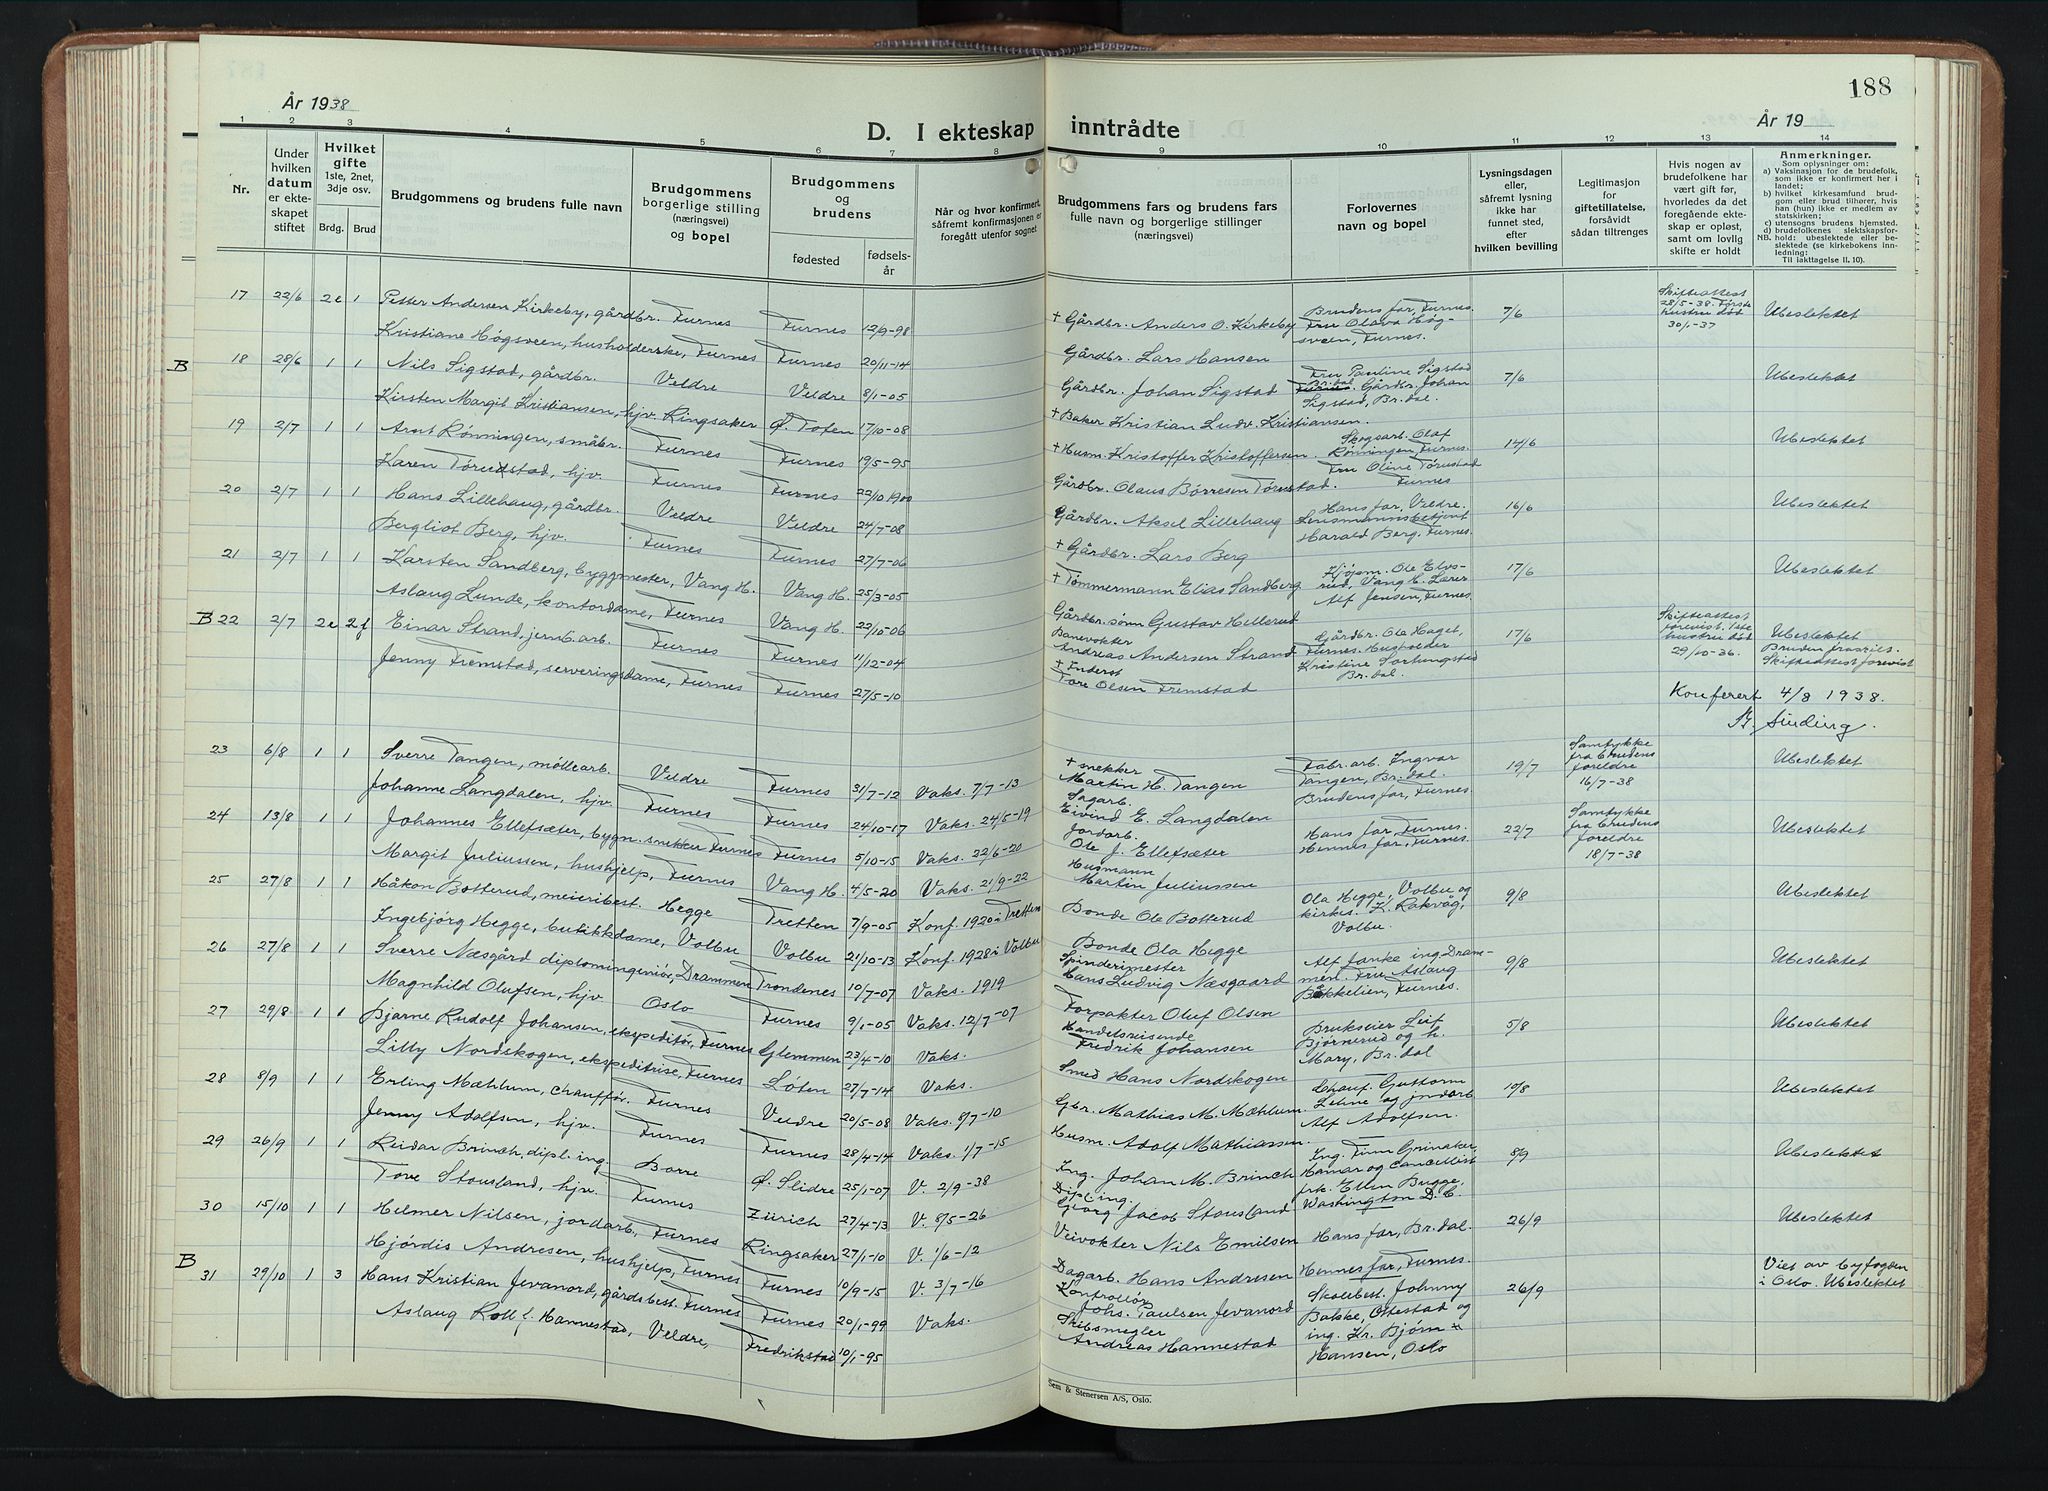 188
År 1938
D. I ekteskap inntrådte
År 19
1 2 3 4 5 6 7 8 9 10 11 12 13 14
Nr.
Under hvilken datum er ekteskapet stiftet
Hvilket gifte 1ste, 2net, 3dje osv.
Brdg. Brud
Brudgommens og brudens fulle navn
Brudgommens borgerlige stilling (næringsvei) og bopel
Brudgommens og brudens
fødested
fødsels-år
Når og hvor konfirmert, såfremt konfirmasjonen er foregått utenfor sognet
Brudgommens fars og brudens fars fulle navn og borgerlige stillinger (næringsvei)
Forlovernes navn og bopel
Lysningsdagen eller, såfremt lysning ikke har funnet sted, efter hvilken bevilling
Legitimasjon for giftetillatelse, forsåvidt sådan tiltrenges
Hvis nogen av brudefolkene har vært gift før, hvorledes da det foregående ekteskap er opløst, samt om lovlig skifte er holdt
Anmerkninger.
Som oplysninger om:
a) Vaksinasjon for de brudefolk, som ikke er konfirmert her i landet;
b) hvilket kirkesamfund brudgom eller brud tilhører, hvis han (hun) ikke er medlem av statskirken;
c) utensogns brudens hjemsted.
d) brudefolkenes slektskapsforhold: ubeslektede eller beslektede (se kirkebokens innledning:
NB. Til iakttagelse II. 10).
17 22/6 2e 1 Petter Andersen Kirkeby, gårdbr. Furnes Furnes 12/9-98 + Gårdbr. Anders O. Kirkeby Brudens far, Furnes. Fru Olava Høgsveen, Furnes. 7/6 Skifteattest 28/5-38. Første hustru død 30/1-37 Ubeslektet
Kristiane Høgsveen, husholderske, Furnes Furnes 20/11-14 Gårdbr. Lars Hansen
B 18 28/6 1 1 Nils Sigstad, gårdbr. Veldre Veldre 8/1-05 Gårdbr. Johan Sigstad Fru Pauline Sigstad Br.dal Furnes. Gårdbr. Johan Sigstad, Br.dal. 7/6 Ubeslektet
Kirsten Margit Kristiansen, hjv. Ringsaker Ø. Toten 17/10-08 + Baker Kristian Ludv. Kristiansen.
19 2/7 1 1 Arnt Rønningen, småbr. Furnes Furnes 19/5-95 + Husm. Kristoffer Kristoffersen. Skogsarb. Olaf Rønningen, Furnes. Fru Oline Tørustad Furnes 14/6 Ubeslektet
Karen Tørudstad, hjv. Furnes Furnes 22/10 1900 Gårdbr. Olaus Børresen Tørustad.
20 2/7 1 1 Hans Lillehaug, gårdbr. Veldre Veldre 24/7-08 Gårdbr. Aksel Lillehaug Hans far, Veldre. Lensmannsbetjent Harald Berg, Furnes. 16/6 Ubeslektet
Bergliot Berg, hjv. Furnes Furnes 27/7-06 + Gårdbr. Lars Berg
21 2/7 1 1 Karsten Sandberg, byggmester, Vang H. Vang H. 25/3-05 + Tømmermann Elias Sandberg Kjøpm. Ole Elvsrud, Vang H. Lærer Alf Jensen, Furnes. 17/6 Ubeslektet
Aslaug Lunde, kontordame, Furnes Vang H. 22/10-06 Gårdbr.sønn Gustav Hellerud
B 22 2/7 2e 2f Einar Strand, jernb.arb. Furnes Furnes 11/12-04 Banevokter Andreas Andersen Strand Gårdbr. Ole Haget, Furnes. Husholder Kristine Sørtungstad Br.dal. 17/6 Skifteattest forevist. 1ste hustru død 29/10-36. Ubeslektet Bruden fraskilt. Skifteattest forevist
Jenny Fremstad, serveringsdame, Furnes Furnes 27/5-10 + Inderst Tore Olsen Fremstad
Konferert 4/8 1938.
Sinding.
23 6/8 1 1 Sverre Tangen, møllearb. Veldre Furnes 31/7-12 Vaks. 7/7-13 + snekker Martin H. Tangen Fabr.arb. Ingvar Tangen, Br.dal. Brudens far, Furnes. 19/7 Samtykke fra brudens foreldre 16/7-38 Ubeslektet
Johanne Langdalen, hjv. Furnes Furnes 24/10-17 Vaks. 24/5-19 Sagarb. Eivind E. Langdalen
24 13/8 1 1 Johannes Ellefsæter, bygn.snekker Furnes Furnes 5/10-15 Vaks. 22/6-20 Jordarb. Ole J. Ellefsæter Hans far, Furnes. Hennes far, Furnes. 22/7 Samtykke fra brudens foreldre 18/7-38 Ubeslektet
Margit Juliussen, hushjelp, Furnes Vang H. 4/5-20 Vaks. 21/9-22 Husmann Martin Juliussen
25 27/8 1 1 Håkon Botterud, meieribest. Hegge Tretten 7/9-05 Konf. 1920 i Tretten Bonde Ole Botterud Ola Hegge, Volbu og kirkes. K. Rakvåg, Volbu. 9/8 Ubeslektet
Ingebjørg Hegge, butikkdame, Volbu Volbu 21/10-13 Konf. 1928 i Volbu Bonde Ola Hegge
26 27/8 1 1 Sverre Næsgård diplomingeniør, Drammen Trondenes 10/7-07 Vaks. 1919 Spinderimester Hans Ludvig Næsgaard Alf Janke ing. Drammen. Fru Aslaug Bakkelien, Furnes. 9/8 Ubeslektet
Magnhild Olufsen, hjv. Oslo Furnes 9/1-05 Vaks. 12/7-07 Forpakter Oluf Olsen
27 29/8 1 1 Bjarne Rudolf Johansen, ekspeditør, Furnes Glemmen 23/4-10 Vaks. Handelsreisende Fredrik Johansen Brukseier Leif Bjørnerud og h. Mary, Br.dal 5/8 Ubeslektet
Lilly Nordskogen, ekspeditrise, Furnes Løten 27/7-14 Vaks. Smed Hans Nordskogen
28 8/9 1 1 Erling Mæhlum, chauffør. Furnes Veldre 20/5-08 Vaks. 8/7-10 Gbr. Mathias M. Mæhlum. Chauf. Guttorm Lehne og jordarb Alf Adolfsen. 10/8 Ubeslektet
Jenny Adolfsen, hjv. Furnes Furnes 28/4-14 Vaks. 1/7-15 Husm. Adolf Mathiassen.
29 26/9 1 1 Reidar Brinch, dipl.ing. Borre Ø. Slidre 25/1-07 V. 2/9-38 Ing. Johan M. Brinch Ing. Finn Grinaker, Hamar og Cancellist frk. Ellen Bugge, Washington D.C. 8/9 Ubeslektet
Tove Stousland, hjv. Furnes Zürich 27/4-13 V. 8/5-26 Dipl.ing. Georg Jacob Stousland
30 15/10 1 1 Helmer Nilsen, jordarb, Furnes Ringsaker 27/1-10 V. 1/6-12 Veivokter Nils Emilsen Hans far, Br.dal. 26/9 Ubeslektet
Hjørdis Andresen, hushjelp, Furnes Furnes 10/9-15 V. 3/7-16 Dagarb. Hans Andresen Hennes far, Furnes.
B 31 29/10 1 3 Hans Kristian Jevanord, gårdsbest. Furnes Furnes 20/1-99 Vaks. Kontrollør Johs. Paulsen Jevanord Skolebest. Johnny Bakke, Ottestad og ing. Kr. Bjørn Hansen, Oslo 26/9 Viet av byfogden i Oslo. Ubeslektet
Aslaug Roll f. Hannestad, Veldre, Fredrikstad 10/1-95 Skibsmegler Andreas Hannestad
Sem & Stenersen A/S, Oslo.